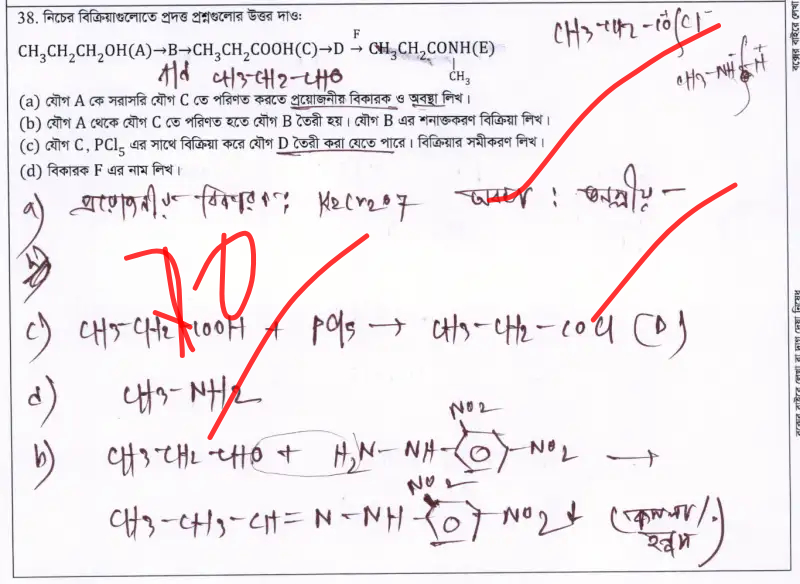 38. নিচের বিক্রিয়াগুলোতে প্রদত্ত প্রশ্নগুলোর উত্তর দাও:
CH3-CH2-CO Cl
CH3CH2CH2OH(A)→B→CH3CH2COOH(C)→D →F CH3CH2CONH(E)
CH3
CH3-NH H
A/d CH3-CH2-CHO
(a) যৌগ A কে সরাসরি যৌগ C তে পরিণত করতে প্রয়োজনীয় বিকারক ও অবস্থা লিখ।
(b) যৌগ A থেকে যৌগ C তে পরিণত হতে যৌগ B তৈরী হয়। যৌগ B এর শনাক্তকরণ বিক্রিয়া লিখ।
(c) যৌগ C, PCl5 এর সাথে বিক্রিয়া করে যৌগ D তৈরী করা যেতে পারে। বিক্রিয়ার সমীকরণ লিখ।
(d) বিকারক F এর নাম লিখ।
a) প্রয়োজনীয় বিকারক: K2Cr2O7 অবস্থা : অম্লীয়
c) CH3-CH2-COOH + PCl5 → CH3-CH2-COCl (D)
d) CH3-NH2
b) CH3-CH2-CHO + H2N-NH- NO2 -NO2 →
CH3-CH3-CH=N-NH- NO2 -NO2↓ (কমলা/হলুদ)